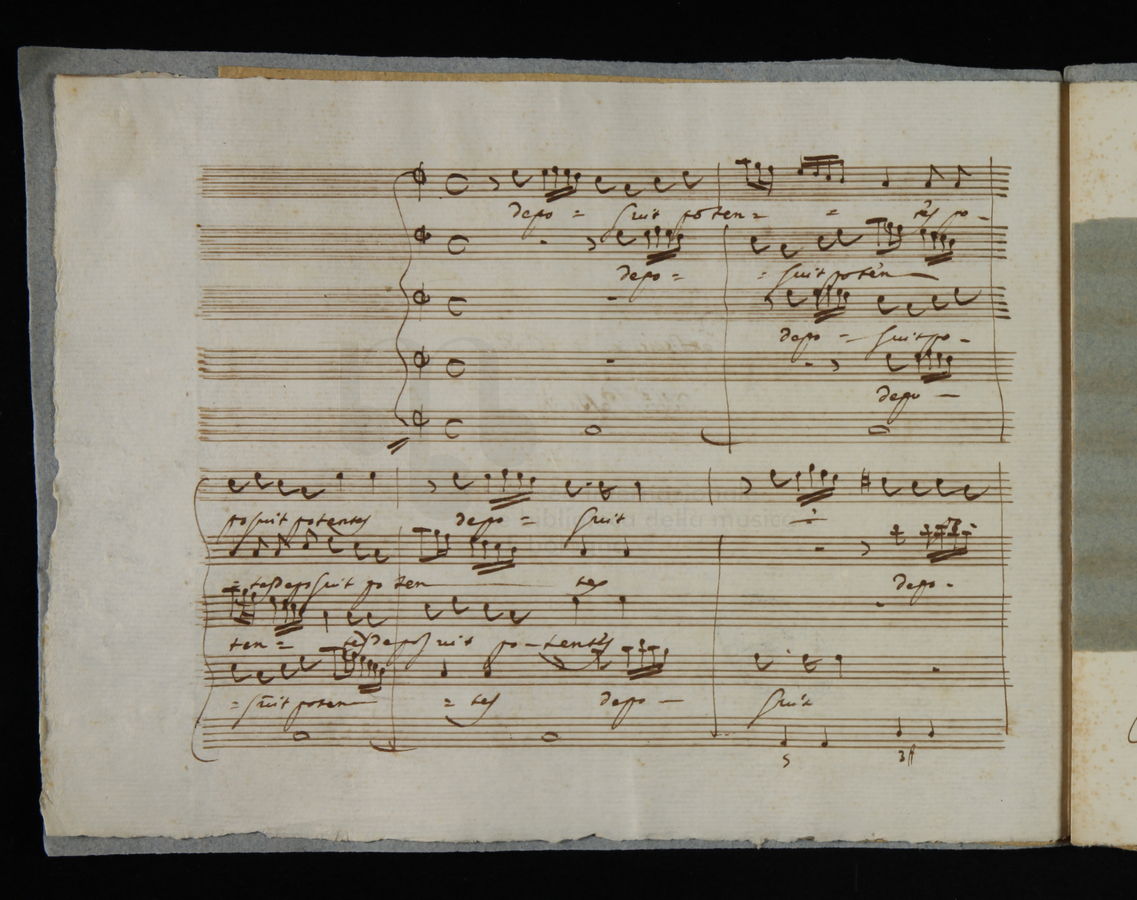 depo = suit poten = = tes po -
depo = = suit poten
depo - suit po -
depo -
po suit potentes depo = suit
= tes depo suit po ten tes depo -
ten = tes depo suit po - tentes
= suit poten = tes depo - suit
5 3#